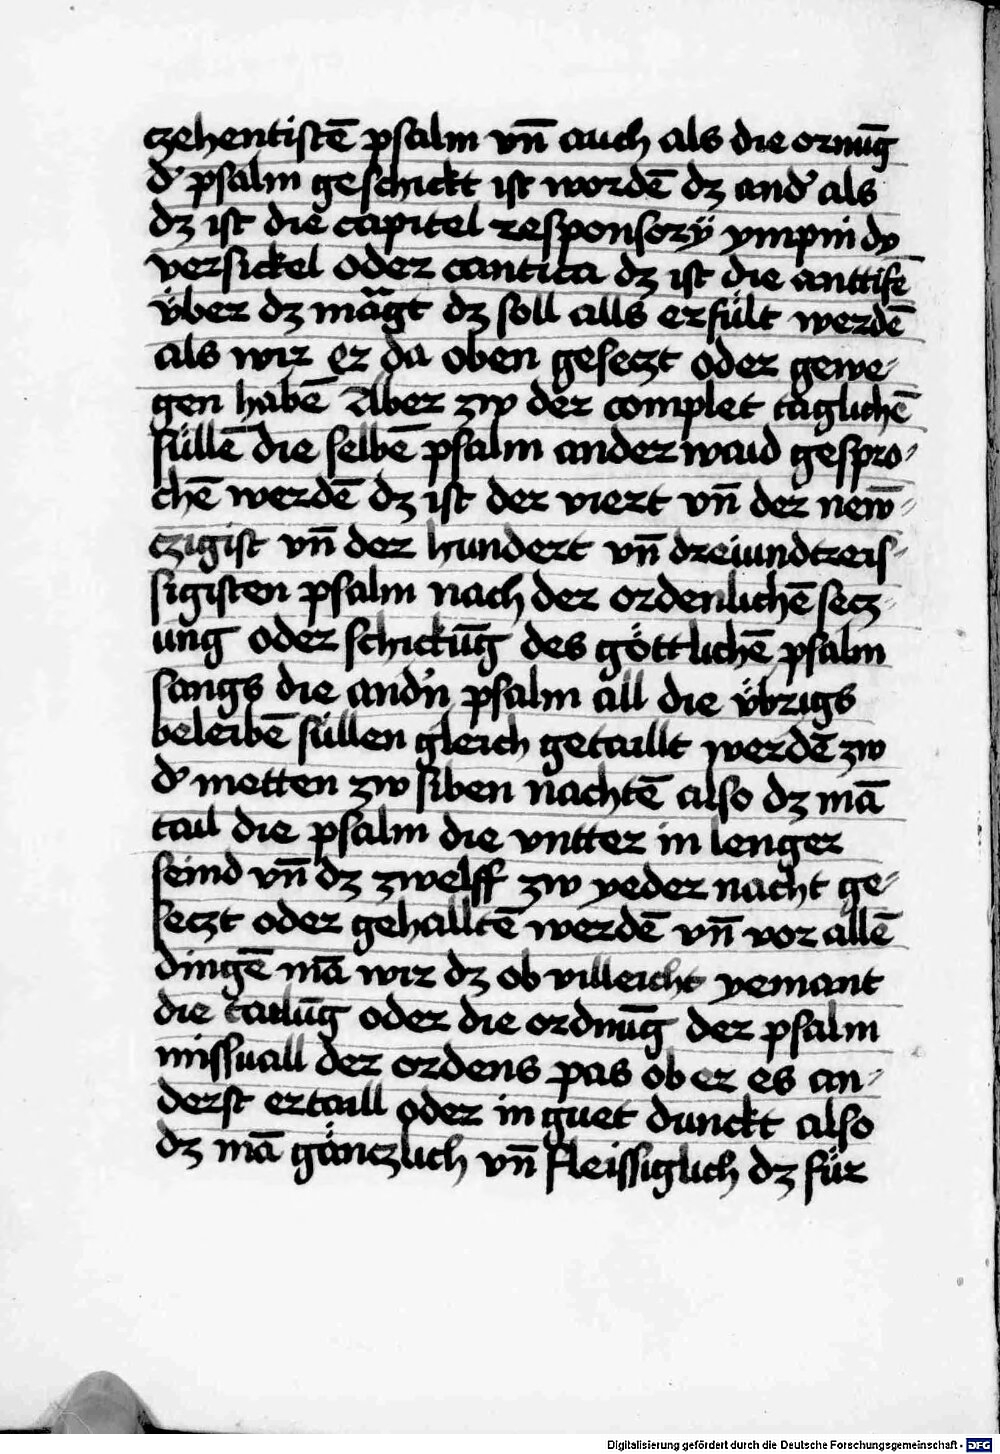 czehentistē psalm vn̄ auch als die ornūg
d' psalm geschickt ist wordē dz and' als
dz ist die capitel responsorÿ ympni dy
versickel oder cantica dz ist die anttifē
v̈ber dz mägt dz soll alls erfült werdē
als wir er da oben geseczt oder gewe-
gen habē Aber zw der complet täglichē
süllē die selbē psalm anderwaid gespro-
chē werdē dz ist der viert vn̄ der new̄-
czigist vn̄ der hundert vn̄ dreiundtreis-
sigisten psalm nach der ordenlichē secz-
ung oder schickūg des göttlichē psalm
sangs die and'n psalm all die v̈brigs
beleibē süllen gleich getaillt werdē zw
d' metten zw siben nachtē also dz mā
tail die psalm die vntter in lenger
seind vn̄ dz zwelff zw yeder nacht ge-
seczt oder gehalltē werdē vn̄ vor allē
dingē mā wir dz ob villeicht yemant
die tailūg oder die ordnūg der psalm
missuall der ordens pas ob er es an-
derst ertaill oder in guet dunckt also
dz mā gänczlich vn̄ fleissiglich dz für
Digitalisierung gefördert durch die Deutsche Forschungsgemeinschaft - DFG